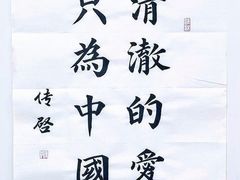 清澈的愛
只為中國
传啓